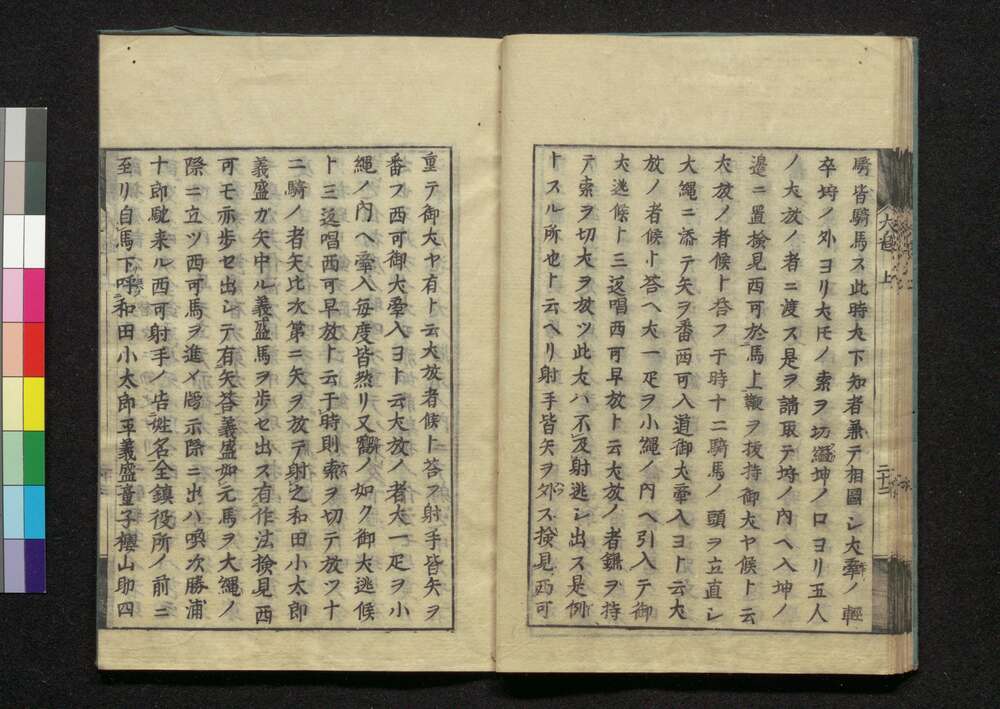 騎皆騎馬ス此時犬下知者兼テ相圖シ犬牽ノ輕
卒埒ノ外ヨリ犬疋ノ索ヲ切繼坤ノ口ヨリ五人
ノ犬放ノ者ニ渡ス是ヲ請取テ埒ノ内ヘ入坤ノ
邉ニ置検見西可於馬上鞭ヲ援持御犬ヤ候ト云
犬放ノ者候ト答フ于時十二騎馬ノ頭ヲ立直シ
大繩ニ添テ矢ヲ番西可入道御犬牽入ヨト云犬
放ノ者候ト答ヘ犬一疋ヲ小繩ノ内ヘ引入テ御
犬逃候ト三返唱西可早放ト云犬放ノ者鎌ヲ持
テ索ヲ切犬ヲ放ツ此犬ハ不及射逃シ出ス是例
トスル所也ト云ヘリ射手皆矢ヲ外ス検見西可
重テ御犬ヤ有ト云犬放者候ト答フ射手皆矢ヲ
番フ西可御犬牽入ヨト云犬放ノ者犬一疋ヲ小
繩ノ内ヘ牽入毎度皆然リ又前ノ如ク御犬逃候
ト三返唱西可早放ト云于時則索ヲ切テ放ツ十
二騎ノ者矢比次第ニ矢ヲ放テ射之和田小太郎
義盛カ矢中ル義盛馬ヲ歩セ出ス有作法検見西
可モ亦歩セ出シテ有矢答義盛如元馬ヲ大繩ノ
際ニ立ツ西可馬ヲ進メ牓示際ニ出ハ喚次勝浦
十郎馳来ル西可射手ノ告姓名全鎮役所ノ前ニ
至リ自馬下呼和田小太郎平義盛童子櫻山助四
六巻 上
二十二